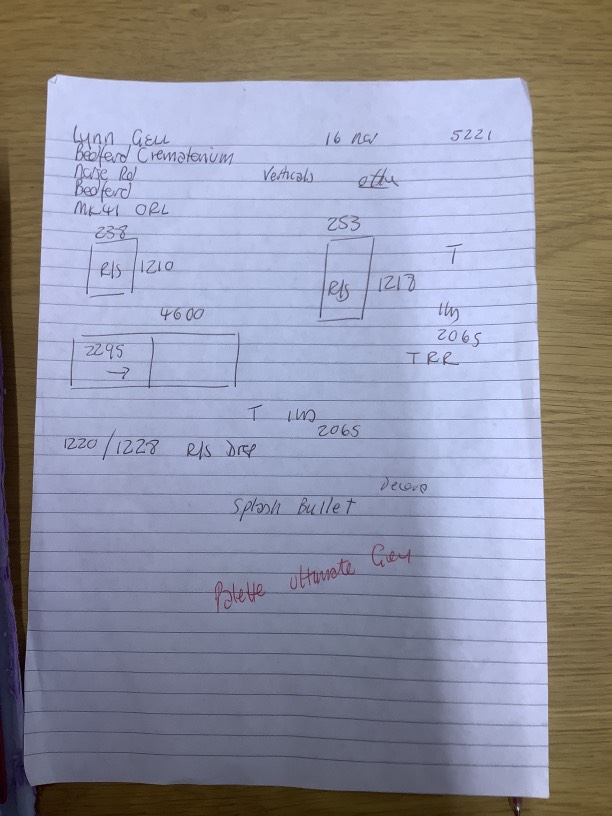 Lynn Gell 16 Nov 5221
Bedford Crematorium
Norse Rd Verticals
Bedford
MK41 0RL
238 253
R/S 1210 R/S 1218 T
4600
2295 2065
→ TRR
T
2065
1220/1228 R/S Drop
Splash Bullet
Palette Ultimate Grey